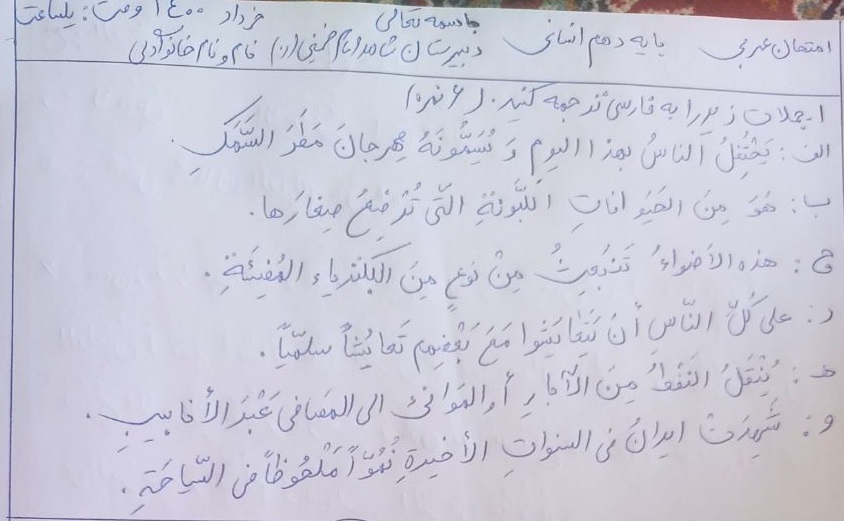 باسمه تعالی
امتحان عربی پایه دهم انسانی دبیرستان شاهد امام خمینی (ره) نام و نام خانوادگی خرداد ۱۴۰۰ وقت: یکساعت
۱- جملات زیر را به فارسی ترجمه کنید. (۶ نمره)
الف: یَحْتَفِلُ الناسُ بهذا الیوم وَ یُسَمُّونَهُ مِهرجانَ مَطَرَ السَّمَکِ.
ب: هُوَ مِنَ الحَیَواناتِ اللَّبونَةِ الَّتی تُرْضِعُ صِغارَها.
ج: هذه الأضواءُ تَنبَعِثُ مِنْ نوعٍ مِنَ البکتریاء المُضیئَةِ.
د: علی کُلِّ النّاسِ أن یَتَعایَشوا مَعَ بَعْضِهِم تَعایُشاً سلمّیاً.
هـ: یُنْقَلُ النَفْطُ مِنَ الآبارِ أو المَوانئ الی المَصافی عَبْرَ الأنابیبِ.
و: شَهِدَتْ ایرانُ فی السنواتِ الأخیرةِ نُمُوّاً مَلْحُوظاً فی السّیاحَةِ.